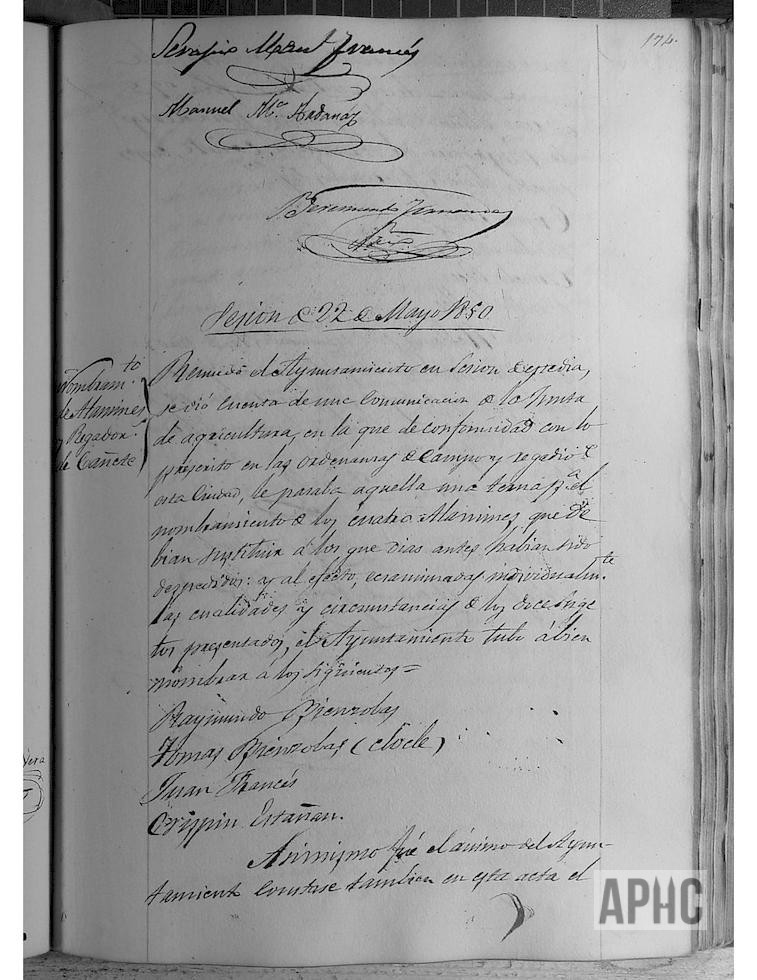 174.
Serapio Mart Francés
Manuel Mª Ardanáz
Beremundo
Srio
Sesion de 22 de Mayo 1850
Nombramto
de Alamines
y Regador
de Cañete
Reunido el Ayuntamiento en Sesion de este dia,
se dió cuenta de una Comunicacion de la Junta
de agricultura, en la que de conformidad con lo
prescrito en las ordenanzas de Campo y regadio de
esta Ciudad, le pasaba aquella una terna pª el
nombramiento de los cuatro Alamines que de
bian sustituir á los que dias antes habian sido
despedidos: y al efecto, ecsaminadas individualmte
las cualidades y circumstancias de los doce suge
tos presentados, el Ayuntamiento tubo á bien
nombrar á los siguientes =
Raymundo Bienzobas
Tomas Bienzobas (Clocle)
Juan Francés
Crispin Estañan.
Asimismo fué el ánimo del Ayun-
tamiento Constase tambien en esta acta el
APHC